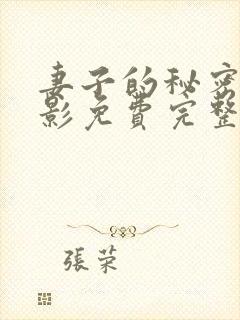 妻子的秘密
影免费完整
張荣